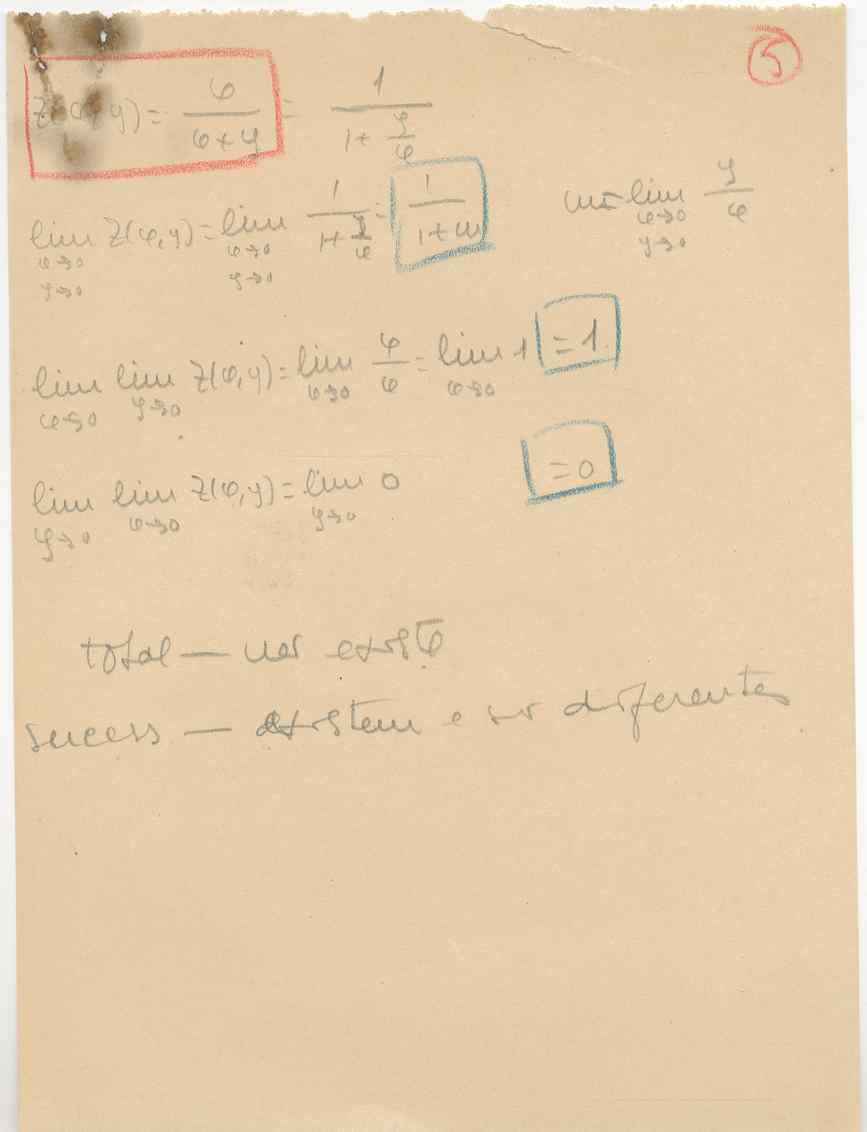 5
z(φ,y) = φ/(φ+y) = 1/(1+y/φ)
lim φ→0 y→0 z(φ,y) = lim φ→0 y→0 1/(1+y/φ) = 1/(1+m)   m = lim φ→0 y→0 y/φ
lim φ→0 lim y→0 z(φ,y) = lim φ→0 φ/φ = lim φ→0 1 = 1.
lim y→0 lim φ→0 z(φ,y) = lim y→0 0 = 0
total — não existe
sucess — existem e são diferentes